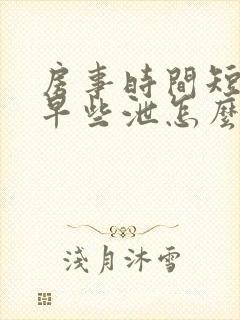 房事時間短
早些泄怎麼
淺月沐雪